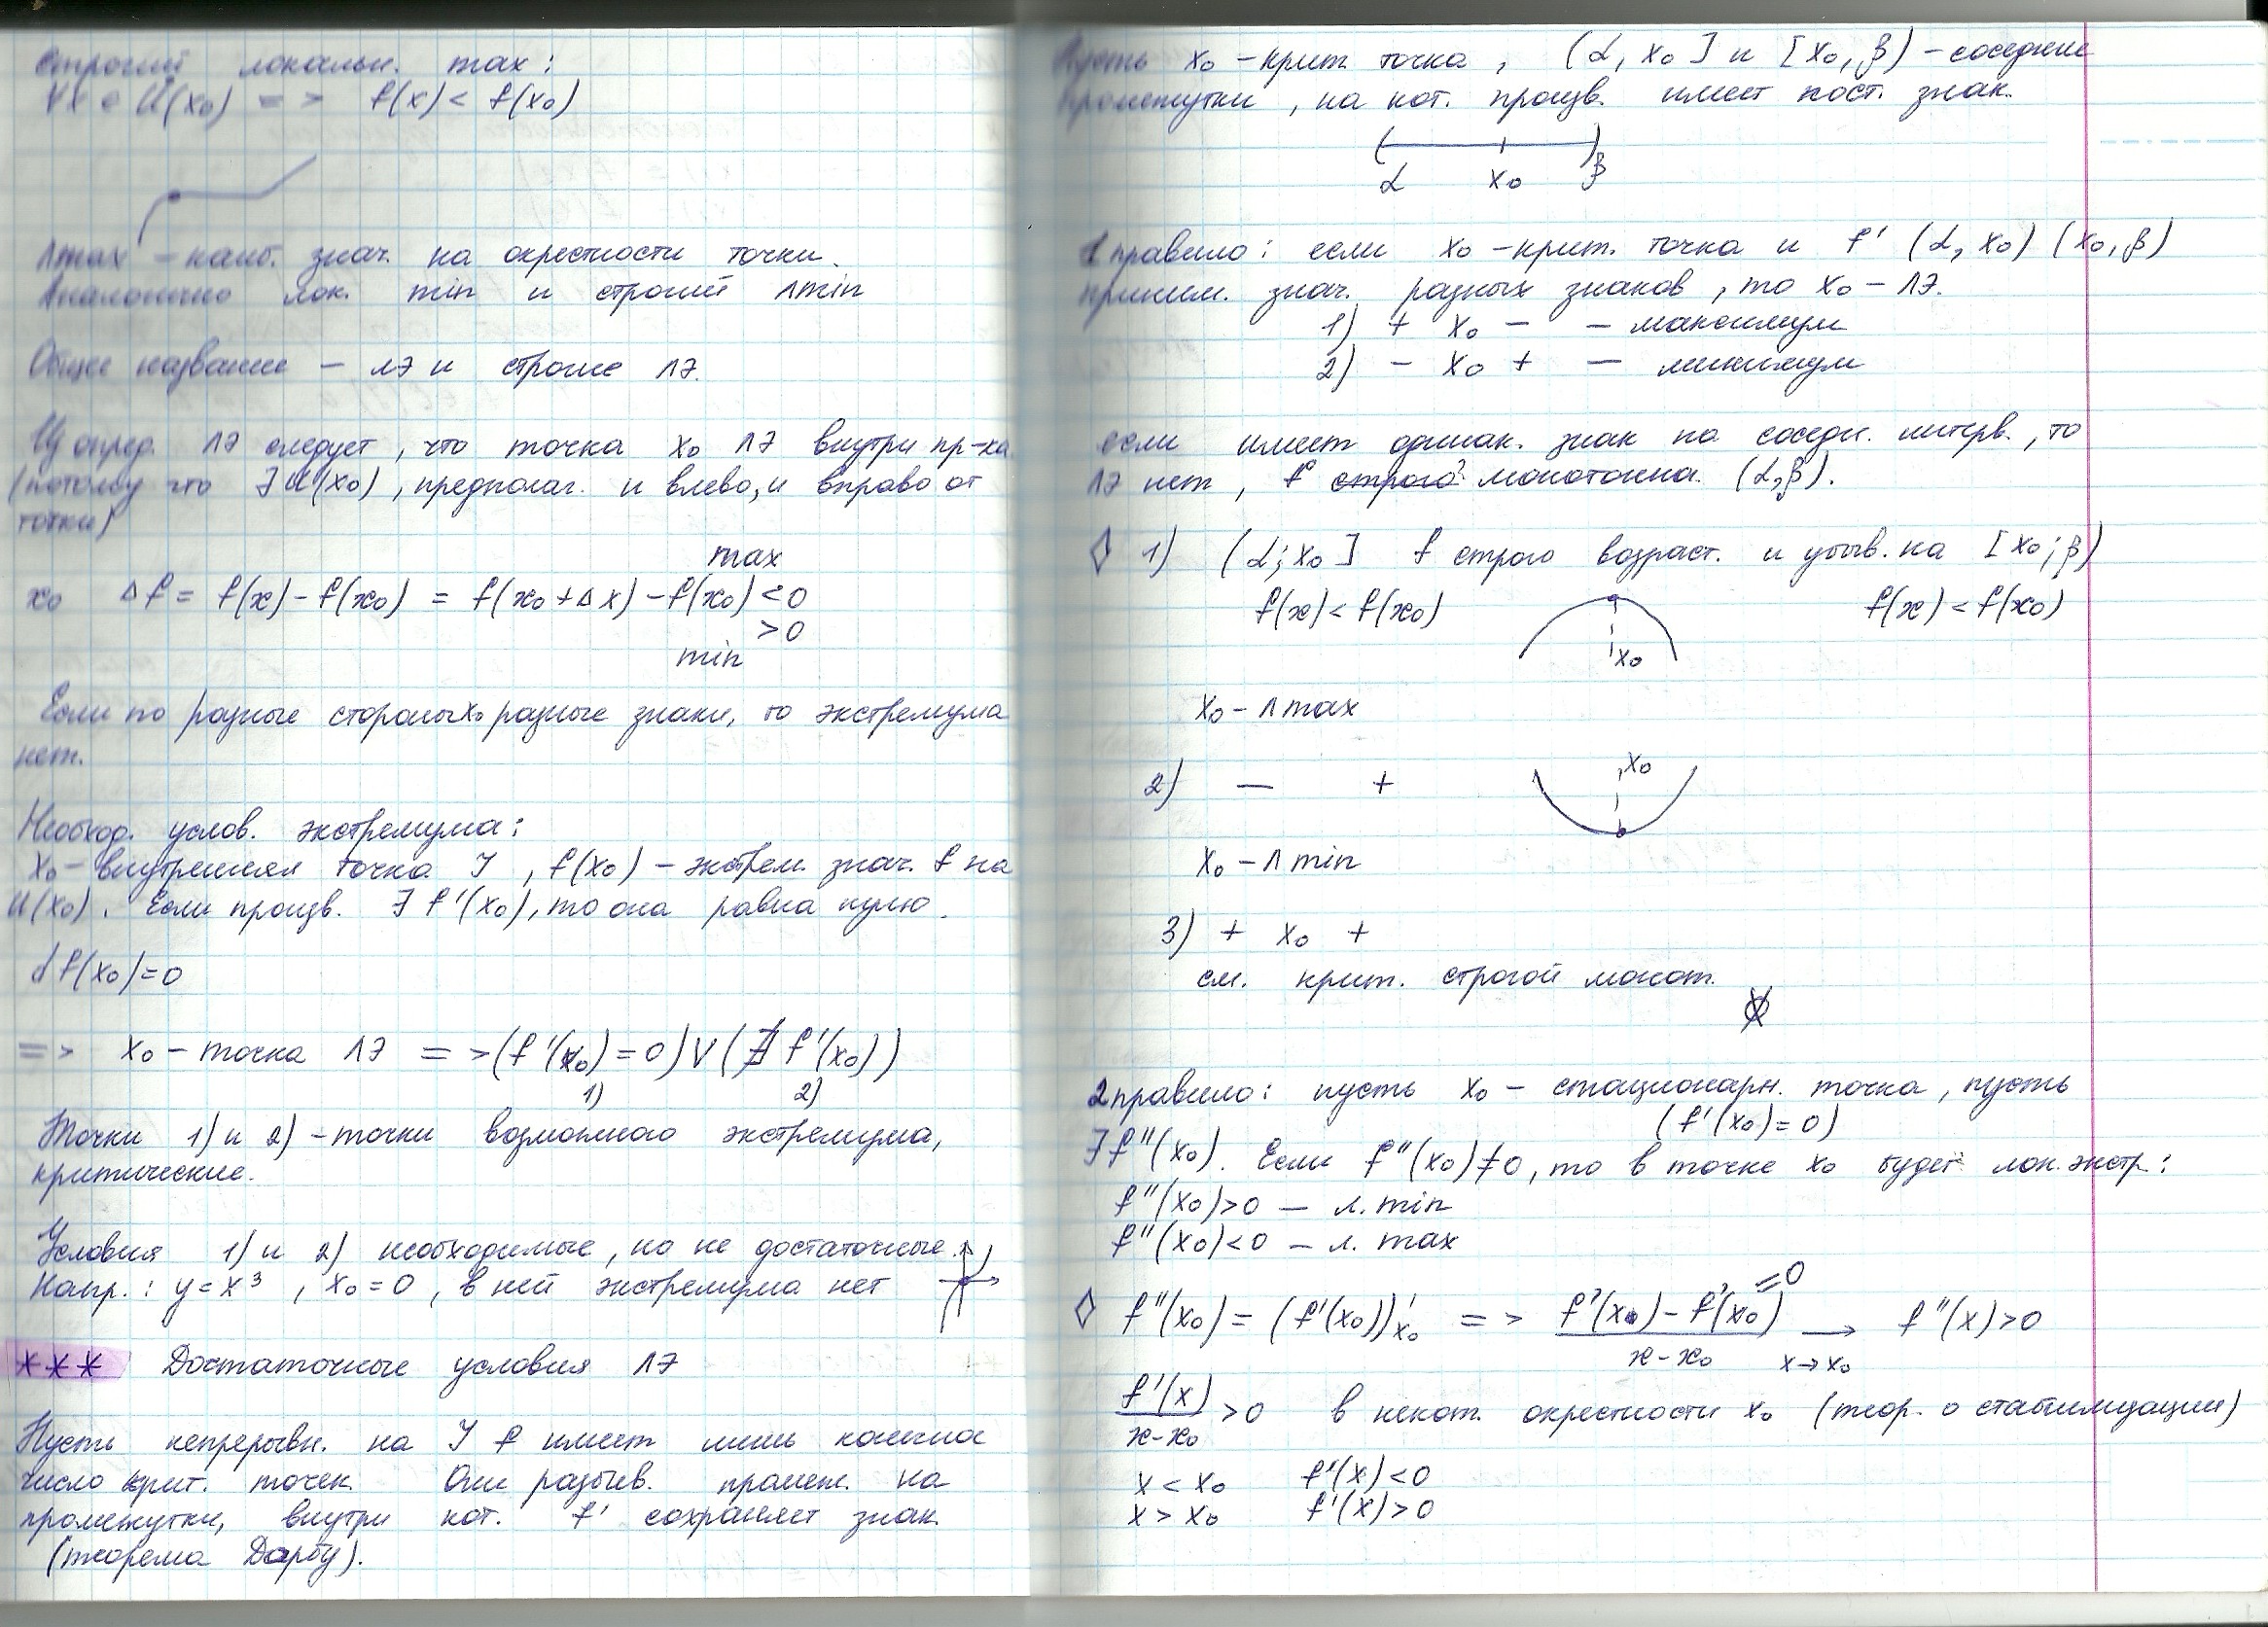 строгий локальн. max:
∀x ∈ U(x₀) => f(x) < f(x₀)
лmax – наиб. знач. на окрестности точки.
Аналогично лок. min и строгий лmin
Общее название – лЭ и строгие лЭ.
Из опред. лЭ следует, что точка x₀ лЭ внутри пр-ка
(потому что ∃ U(x₀), предполаг. и влево, и вправо от
точки)
max
x₀ Δf = f(x) – f(x₀) = f(x₀ + Δx) – f(x₀) < 0
> 0
min
Если по разные стороны x₀ разные знаки, то экстремума
нет.
Необход. услов. экстремума:
x₀ – внутренняя точка I, f(x₀) – экстрем. знач. f на
U(x₀). Если произв. ∃ f'(x₀), то она равна нулю.
d f(x₀) = 0
=> x₀ – точка лЭ => (f'(x₀) = 0) V (∄ f'(x₀))
1) 2)
Точки 1) и 2) – точки возможного экстремума,
критические.
Условия 1) и 2) необходимые, но не достаточные.
Напр.: y = x³, x₀ = 0, в ней экстремума нет
*** Достаточные условия лЭ
Пусть непрерывн. на I f имеет лишь конечное
число крит. точек. Они разбив. промеж. на
промежутки, внутри кот. f' сохраняет знак.
(теорема Дарбу).
Пусть x₀ – крит. точка, (α, x₀] и [x₀, β) – соседние
промежутки, на кот. произв. имеет пост. знак.
α x₀ β
1 правило: если x₀ – крит. точка и f' (α, x₀) (x₀, β)
приним. знач. разных знаков, то x₀ – лЭ.
1) + x₀ – – максимум
2) – x₀ + – минимум
если имеет одинак. знак на соседн. интерв., то
лЭ нет, f строго? монотонна. (α, β).
◊ 1) (α; x₀] f строго возраст. и убыв. на [x₀; β)
f(x) < f(x₀) f(x) < f(x₀)
x₀
x₀ – лmax
2) – + x₀
x₀ – лmin
3) + x₀ +
см. крит. строгой монот.
2 правило: пусть x₀ – стационарн. точка, пусть
(f'(x₀) = 0)
∃ f''(x₀). Если f''(x₀) ≠ 0, то в точке x₀ будет лок. экстр.:
f''(x₀) > 0 – л. min
f''(x₀) < 0 – л. max
=0
◊ f''(x₀) = (f'(x₀))'x₀ => f'(x) – f'(x₀) → f''(x) > 0
x – x₀ x→x₀
f'(x) > 0 в некот. окрестности x₀ (теор. о стабилизации)
x – x₀
x < x₀ f'(x) < 0
x > x₀ f'(x) > 0